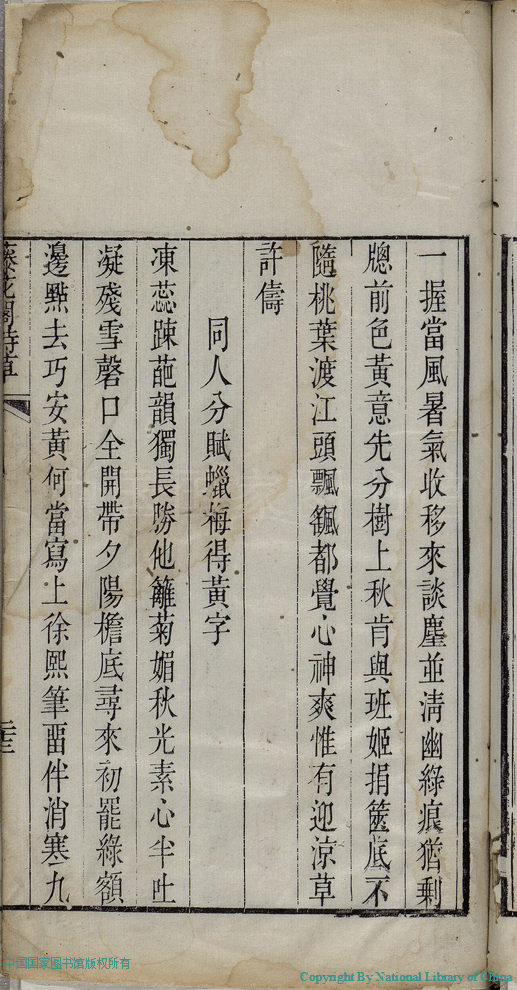 一握當風暑氣收移來談麈並清幽綠痕猶剩
牕前色黃意先分樹上秋肯與班姬捐篋底不
隨桃葉渡江頭飄颻都覺心神爽惟有迎涼草
許儔
同人分賦蠟梅得黃字
凍蕊踈葩韻獨長勝他籬菊媚秋光素心半吐
凝殘雪磬口全開帶夕陽檐底尋來初罷綠額
邊點去巧安黃何當寫上徐熙筆畱伴消寒九
藤花閣詩草
二十三
中国国家图书馆版权所有
Copyright By National Library of China